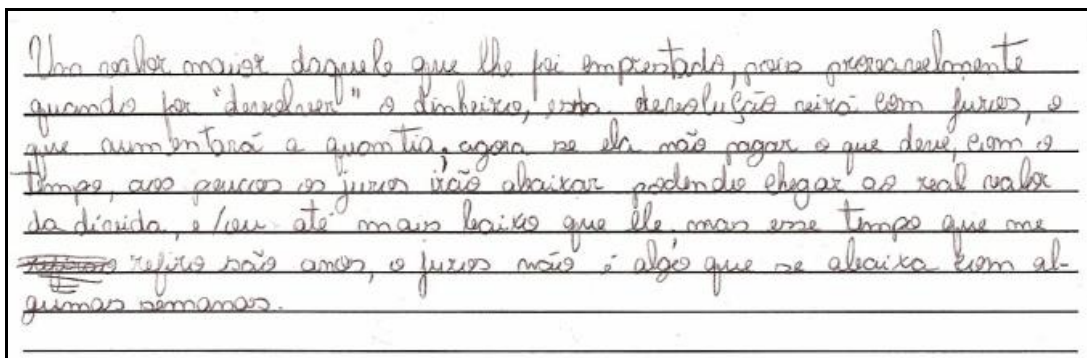 Um valor maior daquele que lhe foi emprestado, pois provavelmente
quando for "devolver" o dinheiro, esta devolução virá com juros, o
que aumentará a quantia, agora se ela não pagar o que deve, com o
tempo, aos poucos os juros irão abaixar podendo chegar ao real valor
da dívida, e/ou até mais baixo que ele mas esse tempo que me
refiro são anos, o juros não é algo que se abaixa com al-
gumas semanas.